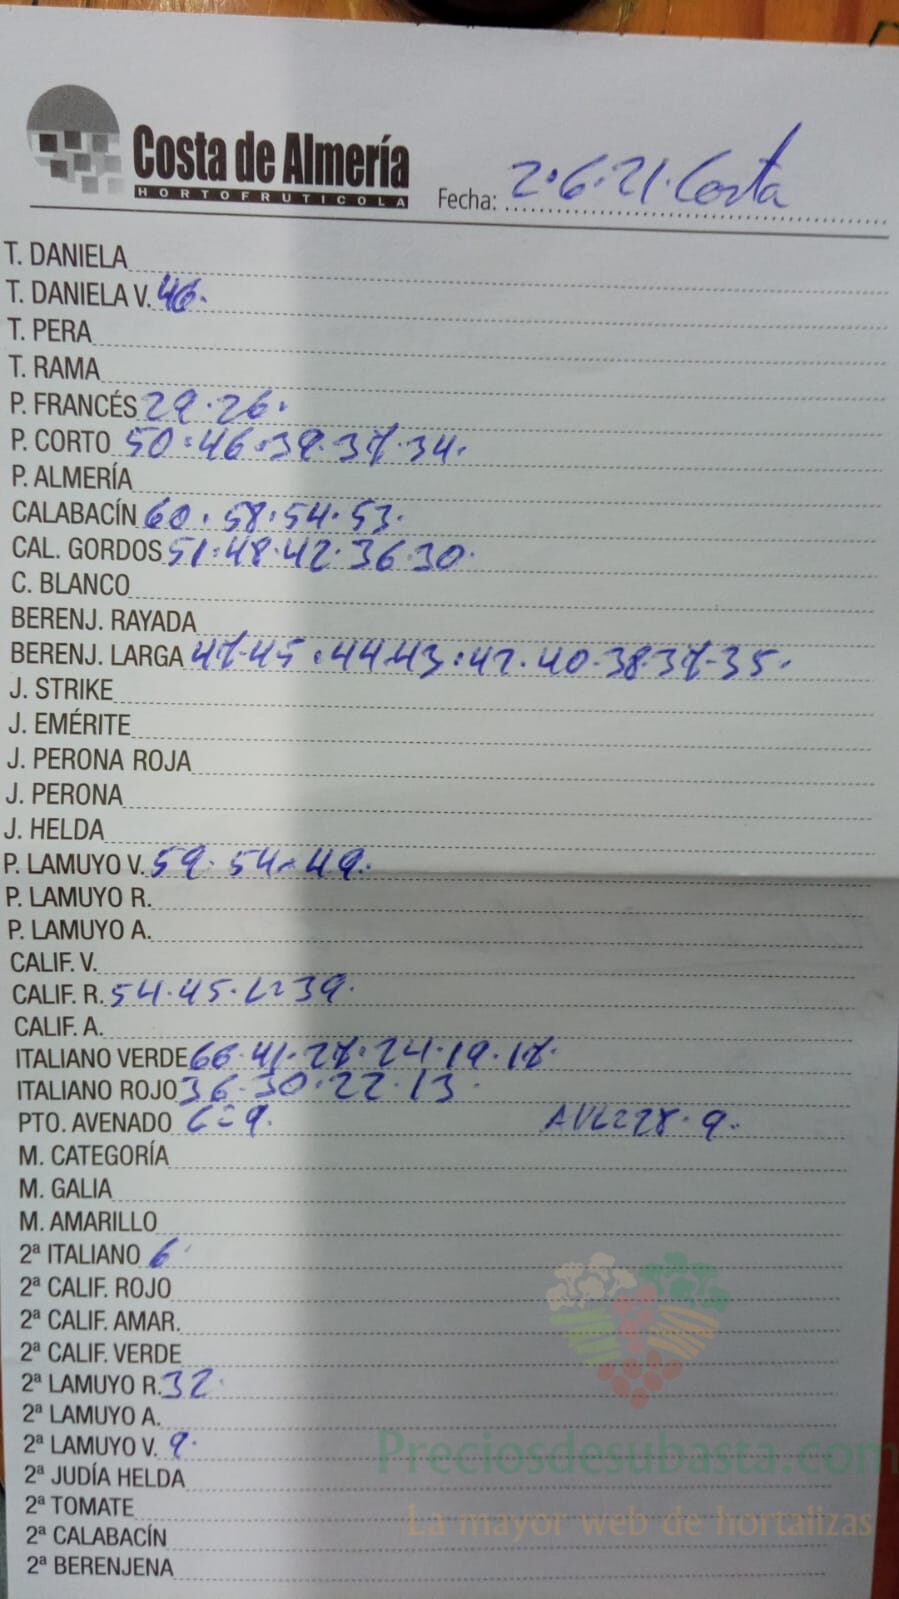 Costa de Almería
HORTOFRUTICOLA
Fecha: 2.6.21. Costa
T. DANIELA
T. DANIELA V. 46.
T. PERA
T. RAMA
P. FRANCÉS 29.26.
P. CORTO 50.46.39.37.34.
P. ALMERÍA
CALABACÍN 60.58.54.53.
CAL. GORDOS 51.48.42.36.30.
C. BLANCO
BERENJ. RAYADA
BERENJ. LARGA 47.45.44.43.42.40.38.37.35.
J. STRIKE
J. EMÉRITE
J. PERONA ROJA
J. PERONA
J. HELDA
P. LAMUYO V. 59.54.49.
P. LAMUYO R.
P. LAMUYO A.
CALIF. V.
CALIF. R. 54.45.L=39.
CALIF. A.
ITALIANO VERDE 66.41.27.24.19.17.
ITALIANO ROJO 36.30.22.13.
PTO. AVENADO C=9. 9.
M. CATEGORÍA
M. GALIA
M. AMARILLO
2ª ITALIANO 6.
2ª CALIF. ROJO
2ª CALIF. AMAR.
2ª CALIF. VERDE
2ª LAMUYO R. 32.
2ª LAMUYO A.
2ª LAMUYO V. 9.
2ª JUDÍA HELDA
2ª TOMATE
2ª CALABACÍN
2ª BERENJENA
Preciosdesubasta.com
La mayor web de hortalizas